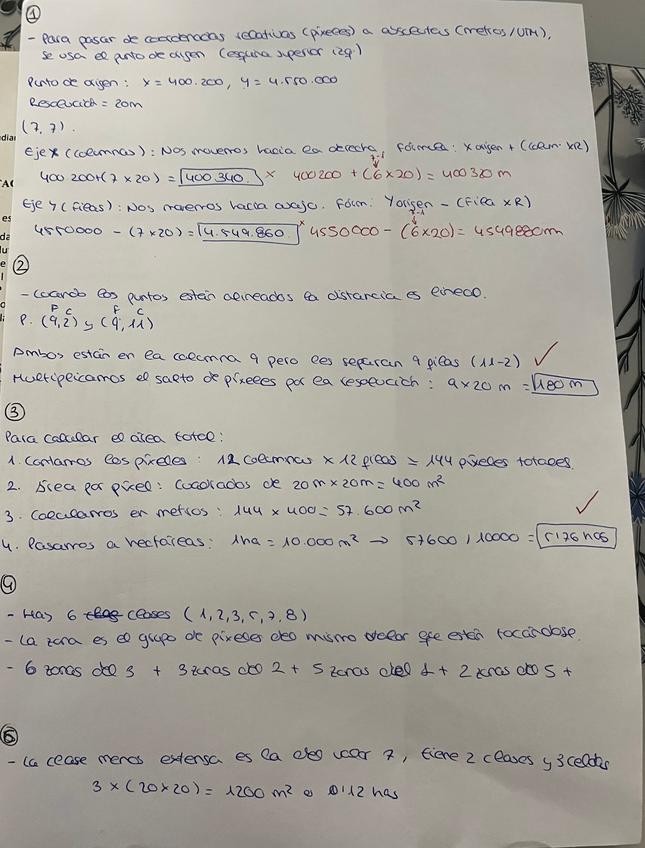 ①
- Para pasar de coordenadas relativas (píxeles) a absolutas (metros/UTM),
se usa el punto de origen (esquina superior izq)
Punto de origen: x = 400.200, y = 4.550.000
Resolución = 20m
(7, 7).
Eje X (columnas): Nos movemos hacia la derecha, Fórmula: x origen + (colum. xR)
7-1
400 200+(7 x 20) = 400.340. x 400200 + (6 x 20) = 400320 m
Eje Y (filas): Nos movemos hacia abajo. Fórm: Yorigen - (Fila x R)
7-1
4550000 - (7x20) = 4.549.860. x 4550000 - (6x20) = 4549880m
②
- Cuando los puntos están alineados la distancia es lineal.
F C F C
P. (9,2) y (9,11)
Ambos están en la columna 9 pero les separan 9 filas (11-2) ✓
Multiplicamos el salto de píxeles por la resolución: 9x20 m = 180 m
③
Para calcular el área total:
1. Contamos los píxeles: 12 columnas x 12 filas = 144 píxeles totales.
2. Área por píxel: Cuadrados de 20m x 20m = 400 m²
3. Calculamos en metros: 144 x 400 = 57.600 m² ✓
4. Pasamos a hectáreas: 1ha = 10.000 m² → 57600 / 10000 = 5'76 has
④
- Hay 6 clases (1,2,3,5,7,8)
- La zona es el grupo de píxeles del mismo valor que están tocándose.
- 6 zonas del 3 + 3 zonas del 2 + 5 zonas del 1 + 2 zonas del 5 +
⑤
- La clase menos extensa es la del valor 7, tiene 2 clases y 3 celdas
3 x (20x20) = 1200 m² o 0'12 has